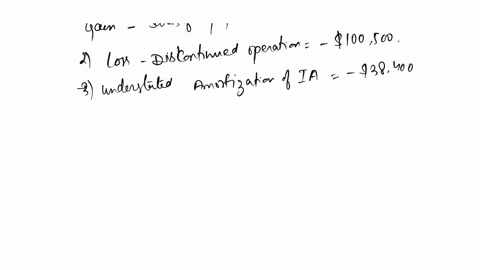 gain -
2) Loss - Discontinued operation = - $100,500.
3) understated Amortization of IA = - $38,400